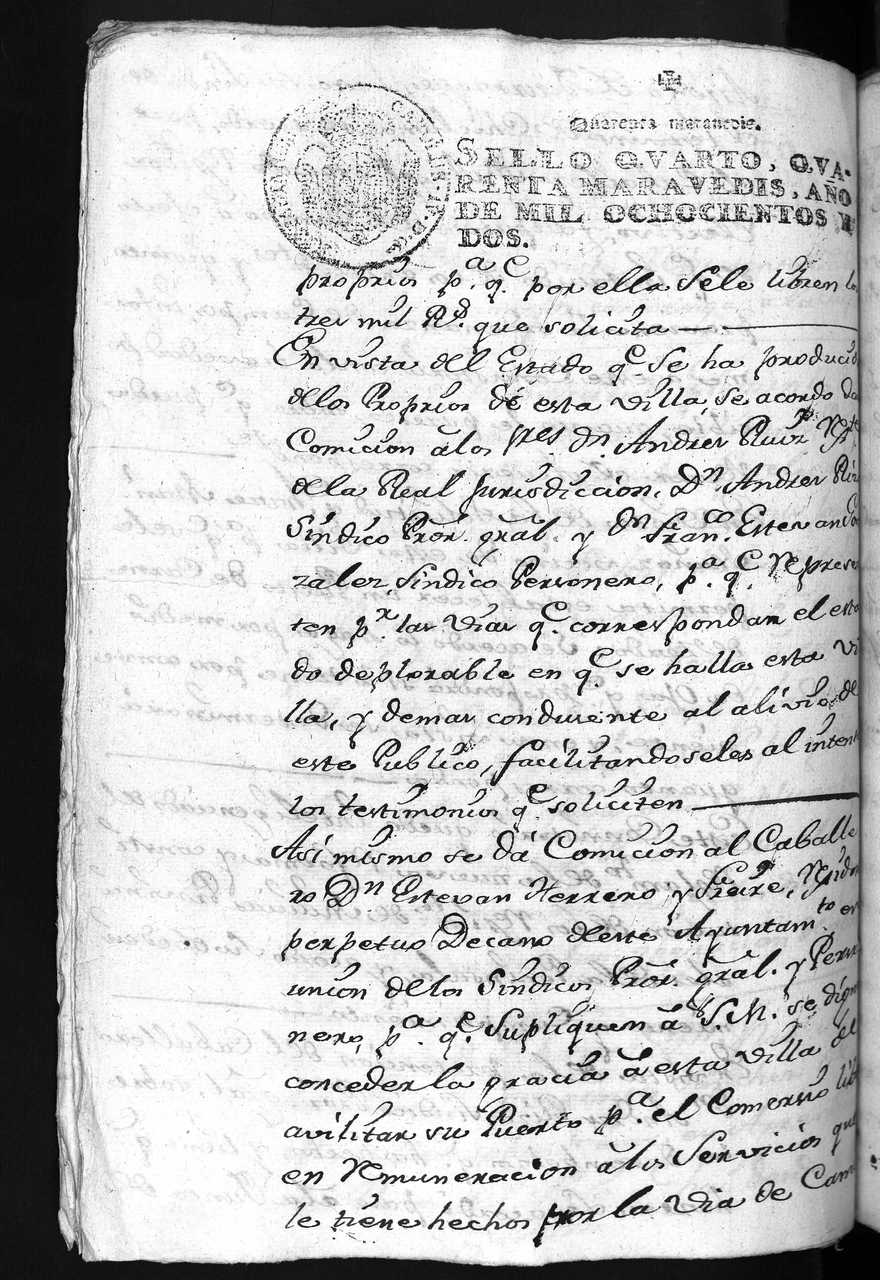 Quarenta maravedis.
SELLO QVARTO, QVA-
RENTA MARAVEDIS, AÑO
DE MIL OCHOCIENTOS Y
DOS.
proprios p.ª q.e por ella sele libren lo
tres mil R.s que solicita
En vista del Estado q.e se ha producid
delos Proprios de esta villa, se acordo da
Comicion álos s.res d.n Andres Ruiz
dela Real Jurisdiccion, D.n Andres
Sindico Pror. gral. y d.n Fran.co Estevan
zalez, Sindico Personero, p.ª q.e represe
ten p.r las vias q.e correspondan el esta
do deplorable en q.e se halla esta vi
lla, y demas condusente al alivio de
este Publico, facilitandoseles al intent
los testimonios q.e soliciten
Asi mismo se dá Comicion al Caballe
ro D.n Estevan Herrero y Freire, Regidor
perpetuo Decano deeste Ayuntam.to en
union delos Sindicos Pror. gral. y Perso
nero, p.ª q.e supliquen á S.M. se digne
conceder la gracia á esta villa del
avilitar su Puerto p.ª el Comersio lib
en remuneracion álos Servicios que
le tiene hechos por la via de Cam